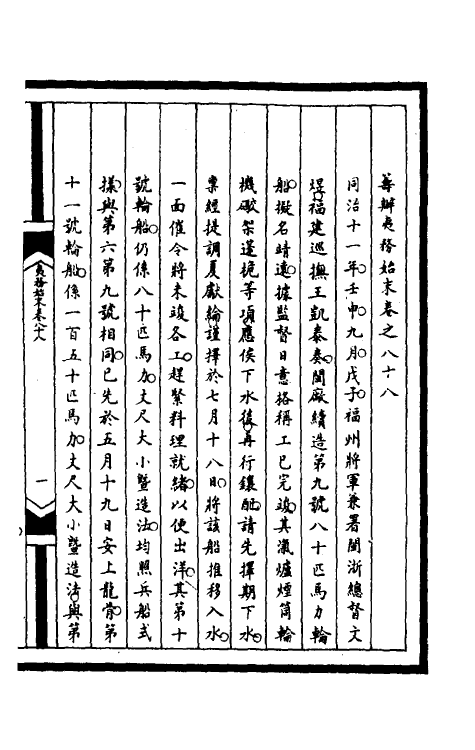 籌辦夷務始末卷之八十八
同治十一年壬申九月戊子福州將軍兼署閩浙總督文
煜福建巡撫王凱泰奏閩廠續造第九號八十匹馬力輪
船擬名靖遠據監督日意格稱工已完竣其瀛爐煙筒輪
機礮架蓬桅等項應俟下水後再行鑲配請先擇期下水
稟經提調夏獻綸謹擇於七月十八日將該船推移入水
一面催令將未竣各工趕緊料理就緒以便出洋其第十
號輪船仍係八十匹馬力丈尺大小暨造法均照兵船式
樣與第六第九號相同已先於五月十九日安上龍骨第
十一號輪船係一百五十匹馬力丈尺大小暨造法與第
夷務始末卷八十八
一